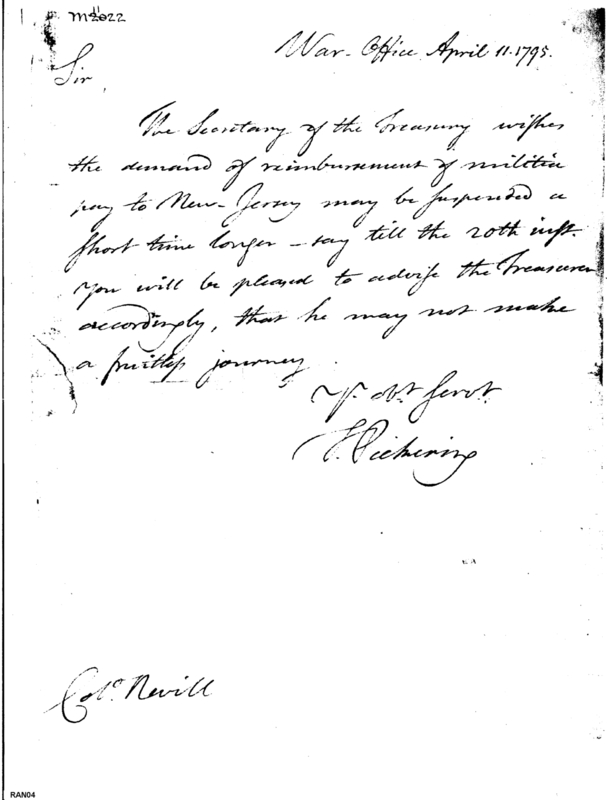 M 22
War-Office April 11. 1795.
Sir,
The Secretary of the Treasury wishes
the demand of reimbursement of militia
pay to New-Jersey may be suspended a
short time longer - say till the 20th inst.
You will be pleased to advise the Treasurer
accordingly, that he may not make
a fruitless journey
Yr. obt. servt.
T. Pickering
Colo. Nevill
RAN04